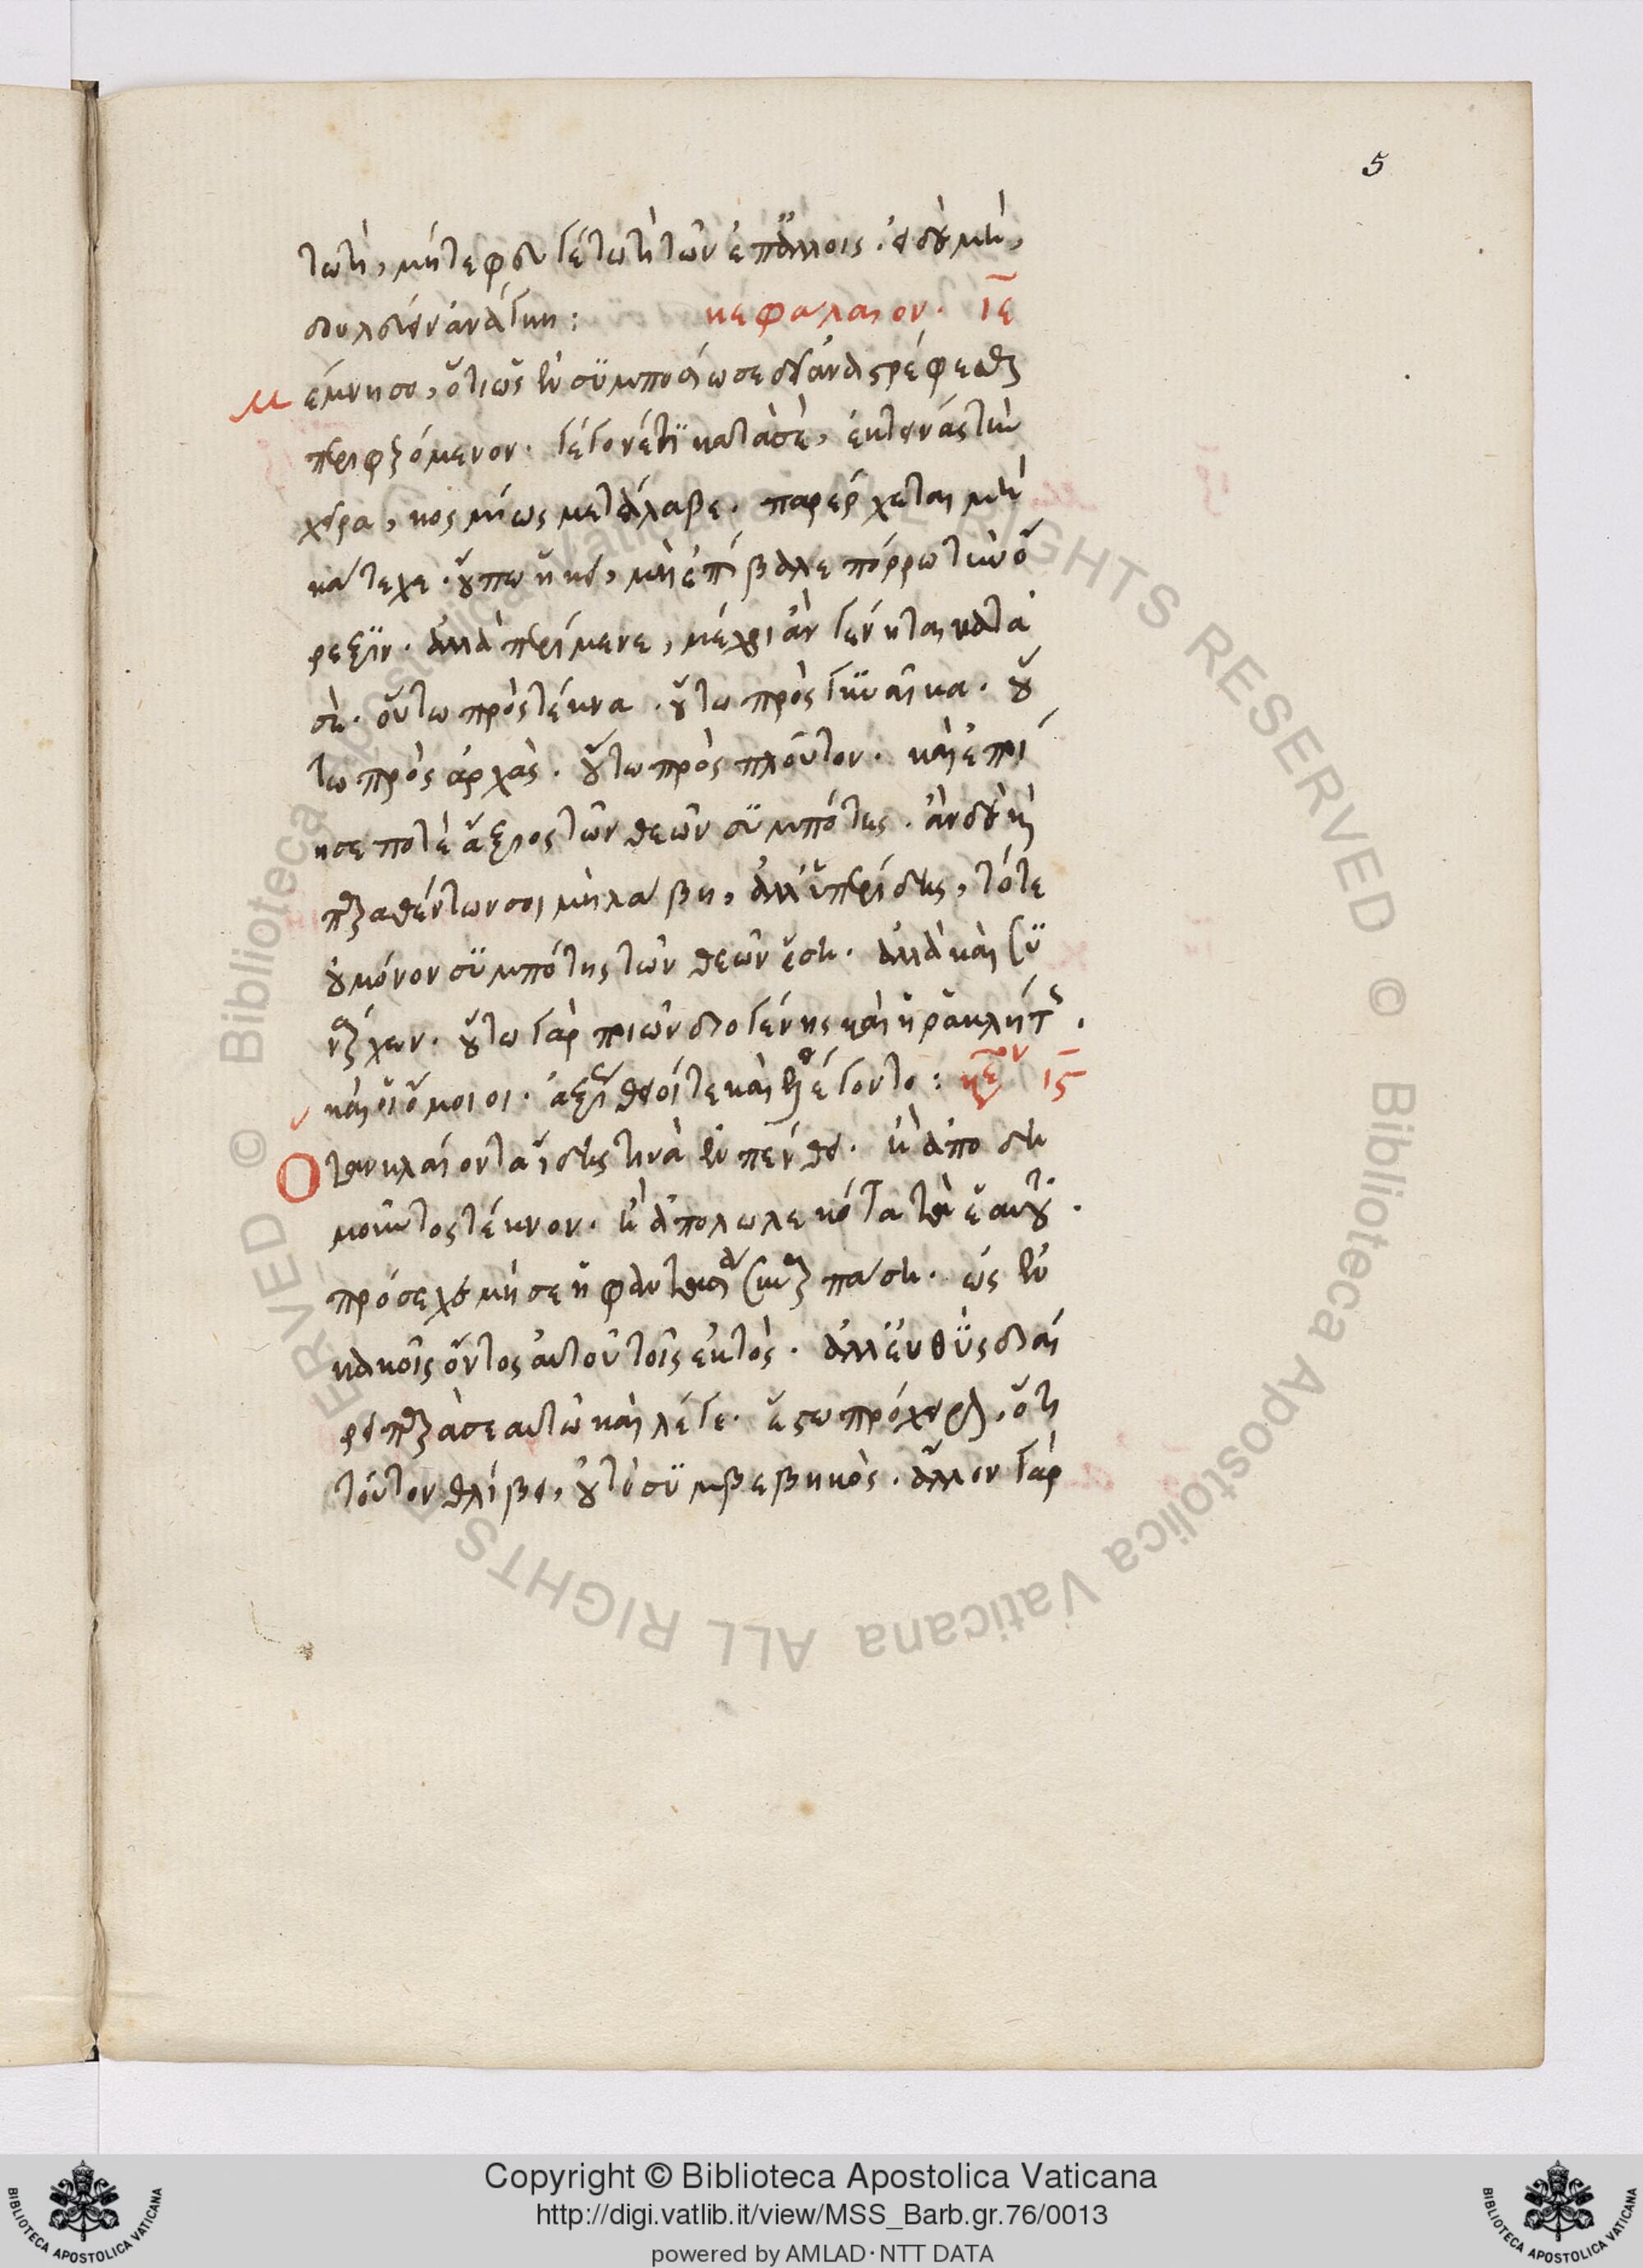 5
τωτι, μήτε φευγέτω τι τῶν ἐπ' ἄλλοις. εἰ δὲ μὴ,
δουλεύειν ἀνάγκη: κεφάλαιον. ιε
Μέμνησο, ὅτι ὡς ἐν συμποσίω σε δεῖ ἀναστρέφεσθαι
περιφερόμενον. γέγονέ τι κατὰ σὲ, ἐκτείνας τὴν
χεῖρα, κοσμίως μετάλαβε. παρέρχεται μὴ
κάτεχε. οὔπω ἥκει, μὴ ἐπίβαλε πόρρω τὴν ὄ
ρεξιν. ἀλλὰ περίμενε, μέχρι ἂν γένηται κατὰ
σὲ. οὕτω πρὸς τέκνα. οὕτω πρὸς γυναῖκα. οὕ
τω πρὸς ἀρχὰς. οὕτω πρὸς πλοῦτον. καὶ ἔση
ποτὲ ἄξιος τῶν θεῶν συμπότης. ἂν δὲ καὶ
παρατεθέντων σοι μὴ λάβης, ἀλλ' ὑπερίδης, τότε
οὐ μόνον συμπότης τῶν θεῶν ἔση. ἀλλὰ καὶ συ
νάρχων. οὕτω γὰρ ποιῶν διογένης καὶ ἡράκλητος.
καὶ οἱ ὅμοιοι. ἀξίως θεοί τε καὶ ἐλέγοντο: κεφ ιϛ
Ὅταν κλαίοντα ἴδης τινὰ ἐν πένθει. ἢ ἀποδη
μοῦντος τέκνου. ἢ ἀπολωλεκότα τὰ ἑαυτοῦ.
πρόσεχε μή σε ἡ φαντασία συναρπάση. ὡς ἐν
κακοῖς ὄντος αὐτοῦ τοῖς ἐκτὸς. ἀλλ' εὐθὺς διαί
ρει παρὰ σεαυτῶ καὶ λέγε. ἔστω πρόχειρον, ὅτι
τοῦτον θλίβει, οὐ τὸ συμβεβηκὸς. ἄλλον γὰρ
Copyright © Biblioteca Apostolica Vaticana
http://digi.vatlib.it/view/MSS_Barb.gr.76/0013
powered by AMLAD·NTT DATA
BIBLIOTECA APOSTOLICA VATICANA
BIBLIOTECA APOSTOLICA VATICANA